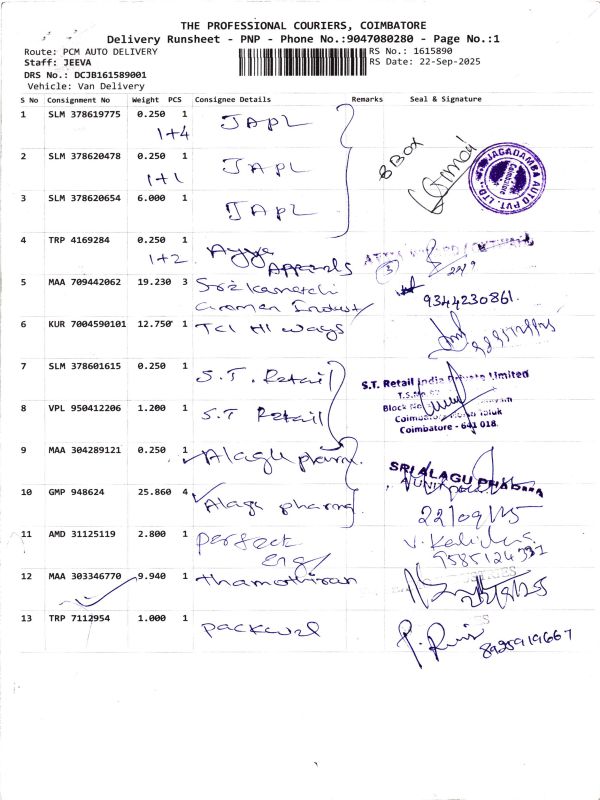 THE PROFESSIONAL COURIERS, COIMBATORE
Delivery Runsheet - PNP - Phone No.:9047080280 - Page No.:1
Route: PCM AUTO DELIVERY
RS No.: 1615890
Staff: JEEVA
RS Date: 22-Sep-2025
DRS No.: DCJB161589001
Vehicle: Van Delivery
S No Consignment No Weight PCS Consignee Details Remarks Seal & Signature
1 SLM 378619775 0.250 1 JAPL
1+4
BBOX
JAGADAMBA AUTO PVT. LTD.
2 SLM 378620478 0.250 1 JAPL
1+1
3 SLM 378620654 6.000 1 JAPL
4 TRP 4169284 0.250 1 Ayya
1+2 Apparels
3
5 MAA 709442062 19.230 3 Sri Kamatchi
9344230861.
6 KUR 7004590101 12.750 1 TCI HI ways
7 SLM 378601615 0.250 1 S.T. Retail
S.T. Retail India Private Limited
T.S.No
Block No
8 VPL 950412206 1.200 1 S.T Retail
Coimbatore - 641 018.
9 MAA 304289121 0.250 1 Alagu pharma.
SRI ALAGU PHARMA
10 GMP 948624 25.860 4 Alagu pharma
22/09/25
11 AMD 31125119 2.800 1 perfect
Eng/
9585124331
12 MAA 303346770 9.940 1 thamothiran
13 TRP 7112954 1.000 1 packwel
8925919667